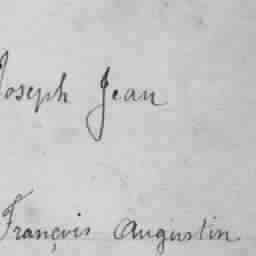 Joseph Jean
François Augustin